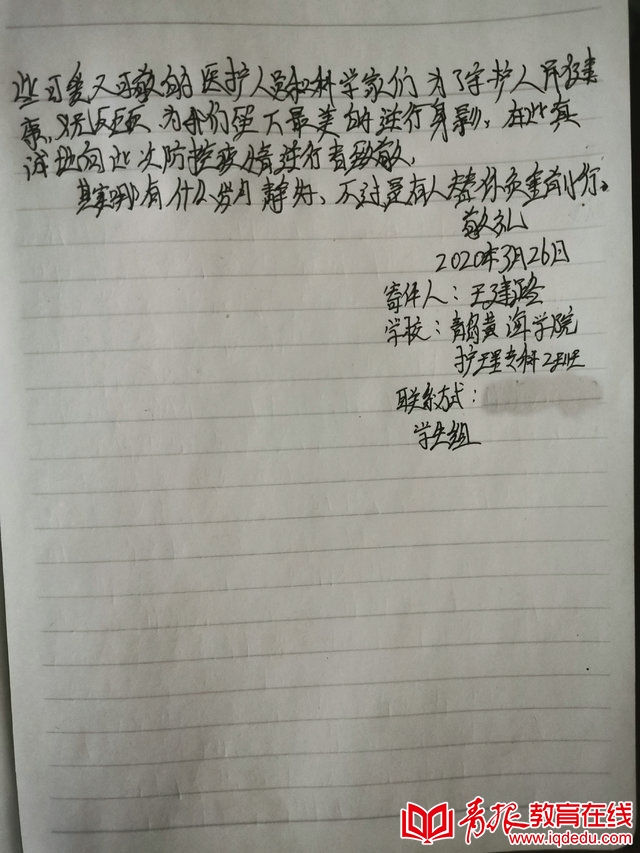 些可爱又可敬的医护人员和科学家们为了守护人民健
康,义无反顾,为我们留下最美的逆行身影,在此真
诚地向此次防控疫情逆行者致敬。
其实哪有什么岁月静好,不过是有人替你负重前行。
敬礼
2020年3月26日
寄件人:王建路
学校:青岛黄海学院
护理专科2班
联系方式:
学生组
青报教育在线
www.iqdedu.com